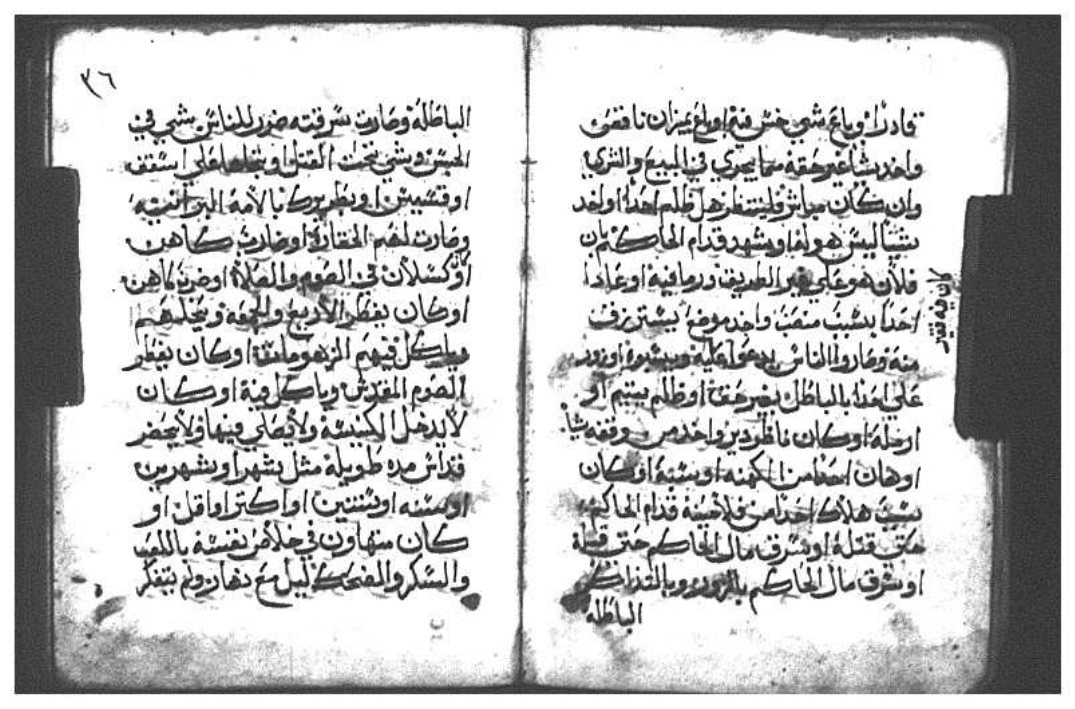 قادرًا وباع شي خسر فيه او باع بميزان ناقص
واخد شيا غير حقه مما يجري في البيع والشري
وان كان مباشر فلينتظر هل ظلم احدًا او اخد
شيا ليس هو له او شهد قدام الحاكم بان
فلان هو علي غير الطريق ورما فيه او عادا
احدًا بسبب منصب واخد موضع يسترزق
منه وصاروا الناس يدعوا عليه ويسبوه او زور
علي احدًا بالباطل بغير حق او ظلم يتيم او
ارملة او كان ناظر دير واخد من وقفه شيا
اوهان احدًا من الكهنه او سبه او كان
سبب هلاك احدًا من فلاحينه قدام الحاكم
حتي قتله او سرق مال الحاكم حتي قتله
او سرق مال الحاكم بالزور وبالتداكر
الباطله
كان فيه
٣٦
الباطاله وصارت سرقته ضرر للناس شي في
الحبس وشي تحت القتل او علي اسقف
او قسيس او بطريرك بالامه البرانيه
وصارت لهم الحقارة او ضارب كاهن
او كسلان في الصوم والصلاة او ضربه كاهن
او كان يفطر الاربع والجمعه ويخلهم
وياكل فيهم الزهومات او كان يفطر
الصوم المقدس وياكل فيه او كان
لايدخل الكنيسه ولايصلي فيها ولايحضر
قداس مده طويلة مثل شهر او شهرين
او سنه او سنتين او اكتر او اقل او
كان متهاون في خلاص نفسه باللعب
والسكر والضحك ليل مع نهار ولم يتفكر